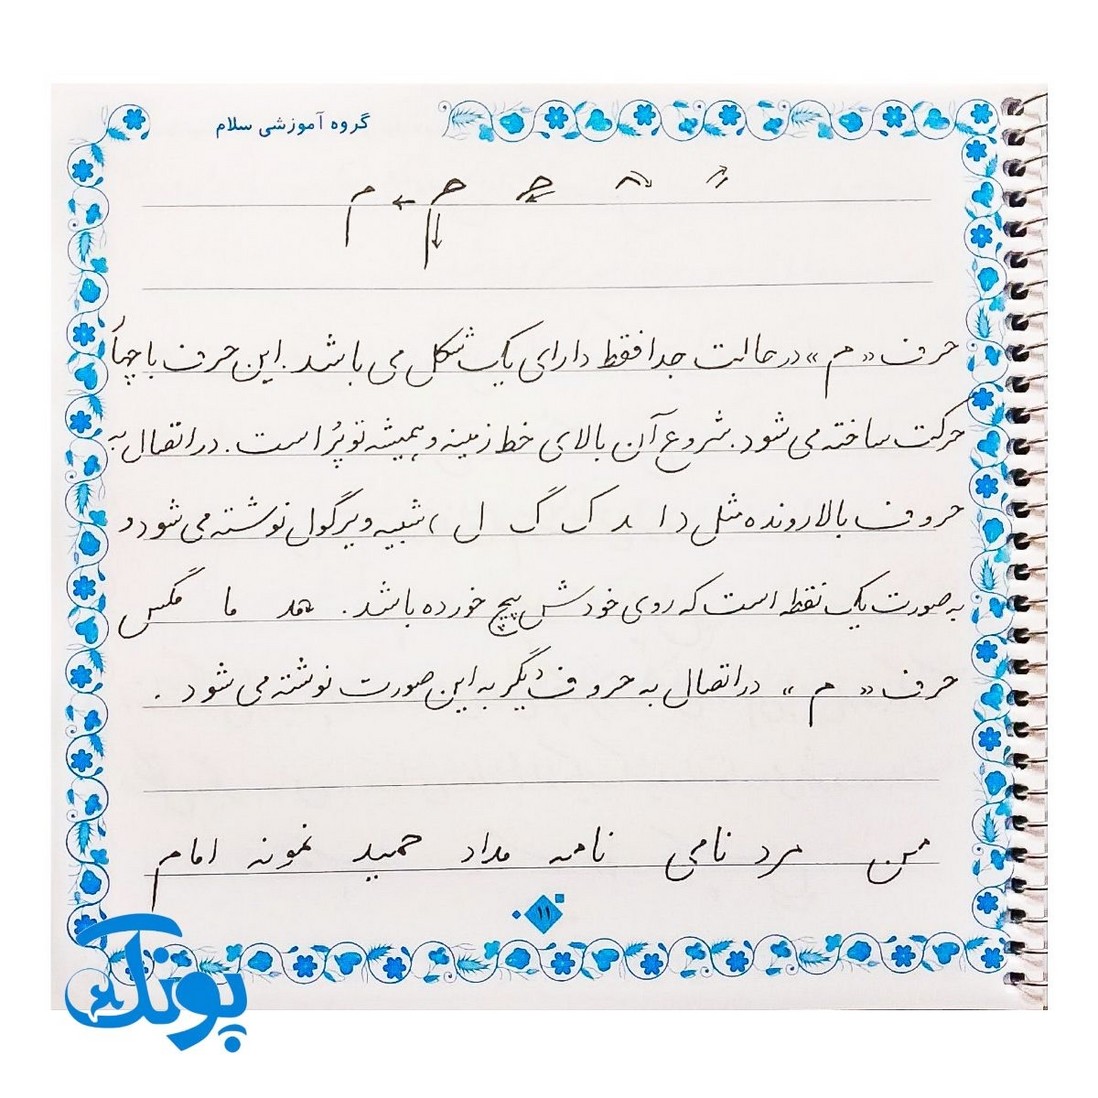 گروه آموزشی سلام
م
حرف «م» در حالت جدا فقط دارای یک شکل می باشد. این حرف با چهار
حرکت ساخته می شود. شروع آن بالای خط زمینه و همیشه تو پُر است. در اتصال به
حروف بالارونده مثل ( ا د ک گ ل )، شبیه ویرگول نوشته می شود و
به صورت یک نقطه است که روی خودش پیچ خورده باشد. ما مگس
حرف « م » در اتصال به حروف دیگر به این صورت نوشته می شود .
من مرد نامی نامه مداد حمید نمونه امام
۱۱
پونک